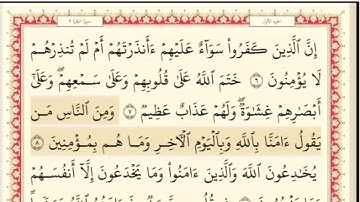 الجزء الأول سورة البقرة ٢
إِنَّ ٱلَّذِينَ كَفَرُوا۟ سَوَآءٌ عَلَيْهِمْ ءَأَنذَرْتَهُمْ أَمْ لَمْ تُنذِرْهُمْ
لَا يُؤْمِنُونَ ٦ خَتَمَ ٱللَّهُ عَلَىٰ قُلُوبِهِمْ وَعَلَىٰ سَمْعِهِمْ ۖ وَعَلَىٰٓ
أَبْصَٰرِهِمْ غِشَٰوَةٌ ۖ وَلَهُمْ عَذَابٌ عَظِيمٌ ٧ وَمِنَ ٱلنَّاسِ مَن
يَقُولُ ءَامَنَّا بِٱللَّهِ وَبِٱلْيَوْمِ ٱلْءَاخِرِ وَمَا هُم بِمُؤْمِنِينَ ٨
يُخَٰدِعُونَ ٱللَّهَ وَٱلَّذِينَ ءَامَنُوا۟ وَمَا يَخْدَعُونَ إِلَّآ أَنفُسَهُمْ